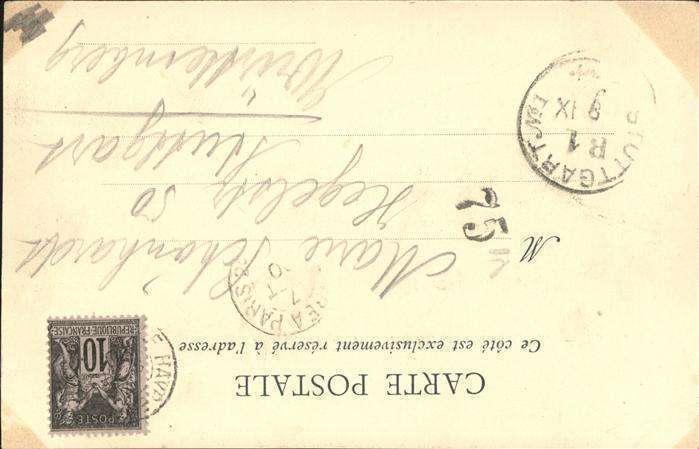 CARTE POSTALE
Ce côté est exclusivement réservé à l'adresse
M lle Marie Schönhardt
Hegelstr 50
Stuttgart
Württemberg
75
POSTE
10
REPUBLIQUE FRANÇAISE
HAVRE
A PARIS
STUTTGART
R 1
9 IX